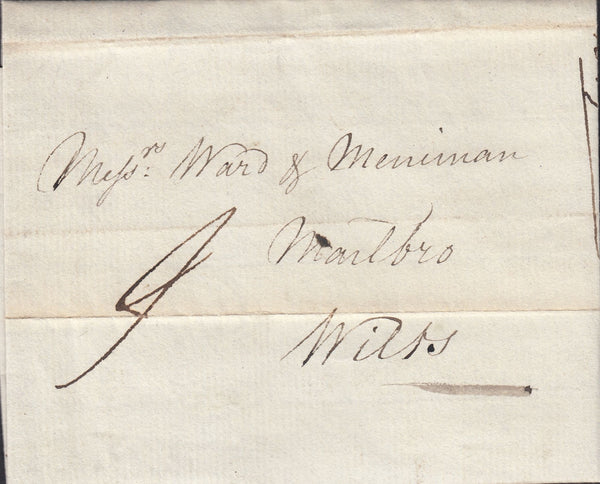 Messrs. Ward & Merriman
Marlbro
Wilts